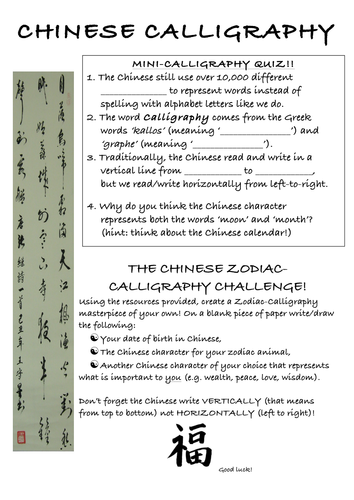 CHINESE CALLIGRAPHY
MINI-CALLIGRAPHY QUIZ!!
1. The Chinese still use over 10,000 different
______________ to represent words instead of
spelling with alphabet letters like we do.
2. The word Calligraphy comes from the Greek
words 'kallos' (meaning '______________') and
'graphe' (meaning '______________').
3. Traditionally, the Chinese read and write in a
vertical line from ____________ to ____________,
but we read/write horizontally from left-to-right.
4. Why do you think the Chinese character
represents both the words 'moon' and 'month'?
(hint: think about the Chinese calendar!)
THE CHINESE ZODIAC-
CALLIGRAPHY CHALLENGE!
Using the resources provided, create a Zodiac-Calligraphy
masterpiece of your own! On a blank piece of paper write/draw
the following:
☯ Your date of birth in Chinese,
☯ The Chinese character for your zodiac animal,
☯ Another Chinese character of your choice that represents
what is important to you (e.g. wealth, peace, love, wisdom).
Don't forget the Chinese write VERTICALLY (that means
from top to bottom) not HORIZONTALLY (left to right)!
福
Good luck!